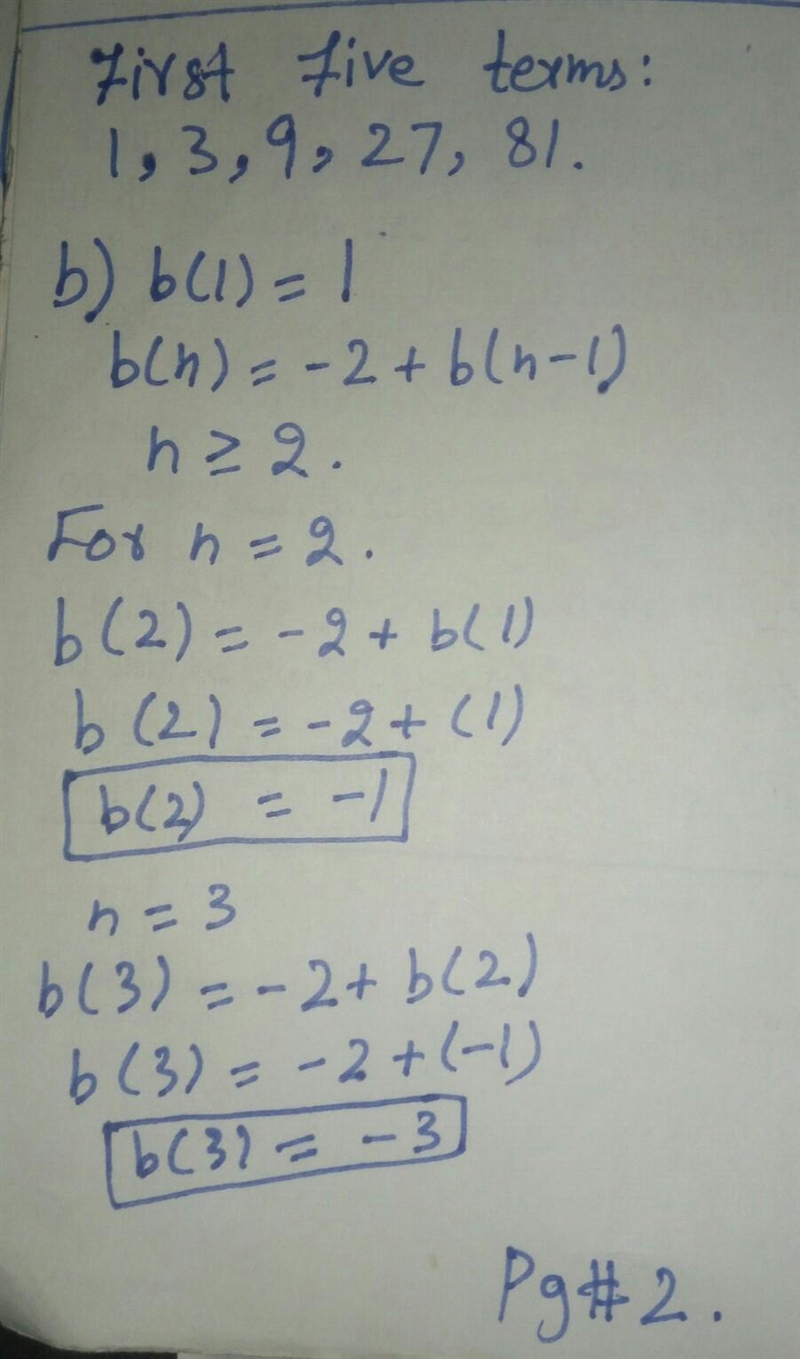 First Five terms:
1, 3, 9, 27, 81.
b) b(1) = 1
b(n) = -2 + b(n-1)
n ≥ 2.
For n = 2.
b(2) = -2 + b(1)
b(2) = -2 + (1)
b(2) = -1
n = 3
b(3) = -2 + b(2)
b(3) = -2 + (-1)
b(3) = -3
Pg# 2.